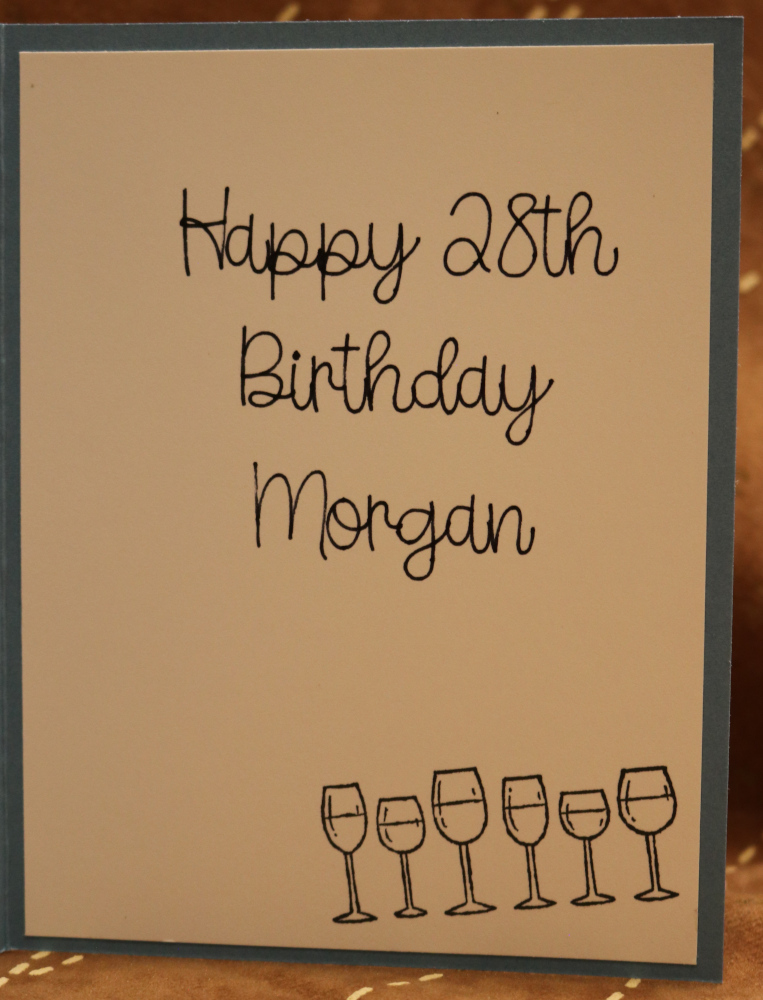 Happy 28th
Birthday
Morgan